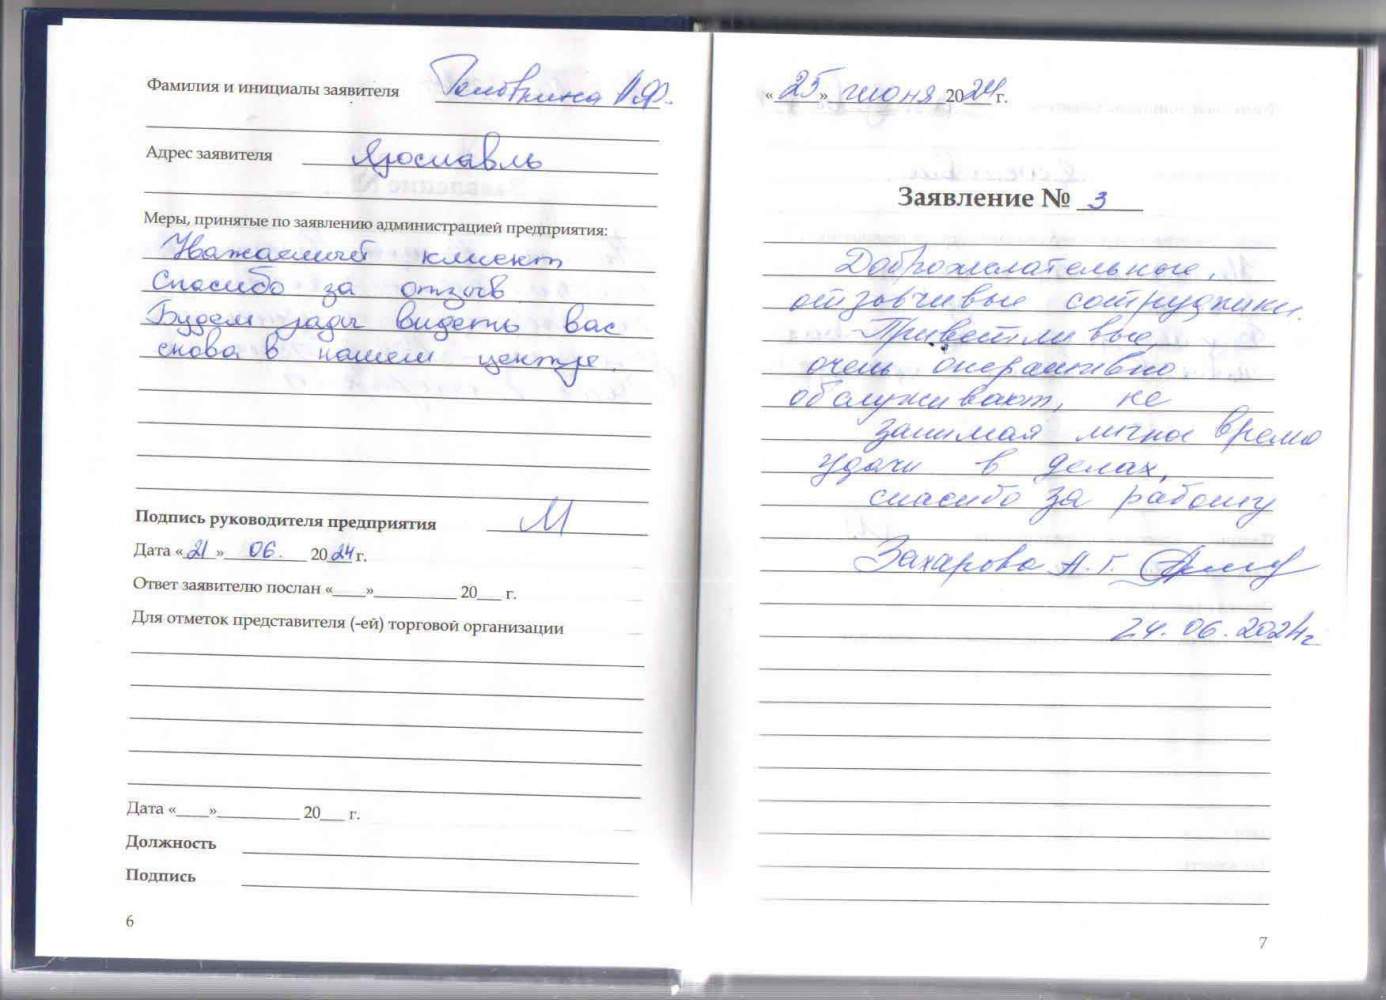 Фамилия и инициалы заявителя Головкина Н.Ф.
Адрес заявителя Ярославль
Меры, принятые по заявлению администрацией предприятия:
Уважаемый клиент
Спасибо за отзыв
Будем рады видеть вас
снова в нашем центре.
Подпись руководителя предприятия
Дата «21» 06. 2024 г.
Ответ заявителю послан «___»_________ 20___ г.
Для отметок представителя (-ей) торговой организации
Дата «___»_________ 20___ г.
Должность
Подпись
6
«25» июня 2024 г.
Заявление № 3
Доброжелательные,
отзывчивые сотрудники.
Приветливые,
очень оперативно
обслуживают, не
занимая личное время
удачи в делах,
спасибо за работу
Захарова А.Г.
24.06.2024г
7